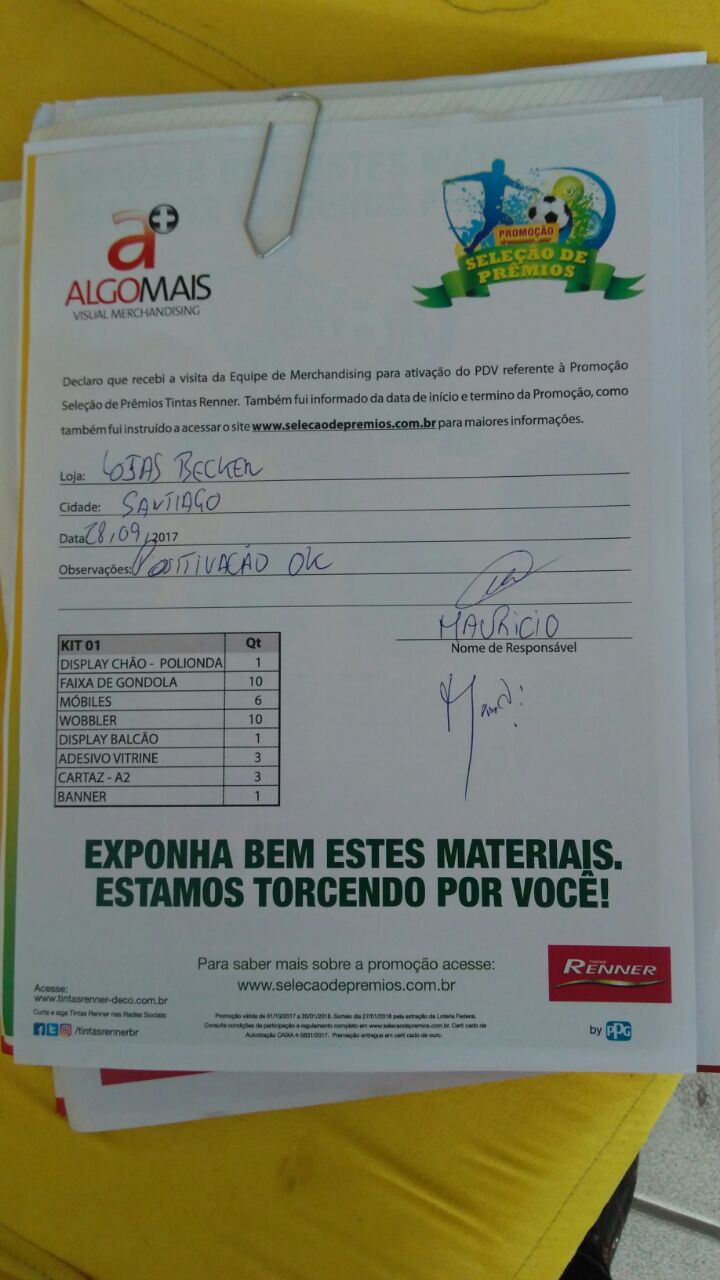 a+
ALGOMAIS
VISUAL MERCHANDISING
PROMOÇÃO
SELEÇÃO DE
PRÊMIOS
Declaro que recebi a visita da Equipe de Merchandising para ativação do PDV referente à Promoção
Seleção de Prêmios Tintas Renner. Também fui informado da data de início e termino da Promoção, como
também fui instruído a acessar o site www.selecaodepremios.com.br para maiores informações.
Loja: LOJAS BECKER
Cidade: SANTIAGO
Data: 28/09/2017
Observações: POSITIVAÇÃO OK
MAURICIO
Nome de Responsável
KIT 01 Qt
DISPLAY CHÃO - POLIONDA 1
FAIXA DE GONDOLA 10
MÓBILES 6
WOBBLER 10
DISPLAY BALCÃO 1
ADESIVO VITRINE 3
CARTAZ - A2 3
BANNER 1
EXPONHA BEM ESTES MATERIAIS.
ESTAMOS TORCENDO POR VOCÊ!
Para saber mais sobre a promoção acesse:
www.selecaodepremios.com.br
TINTAS
RENNER
by PPG
Acesse:
www.tintasrenner-deco.com.br
Curta e siga Tintas Renner nas Redes Sociais:
/tintasrennerbr
Promoção válida de 01/10/2017 a 20/01/2018. Sorteio dia 27/01/2018 pela extração da Loteria Federal.
Consulte condições de participação e regulamento completo em www.selecaodepremios.com.br. Certi cado de
Autorização CAIXA 4-5031/2017. Premiação entregue em certi cado de ouro.